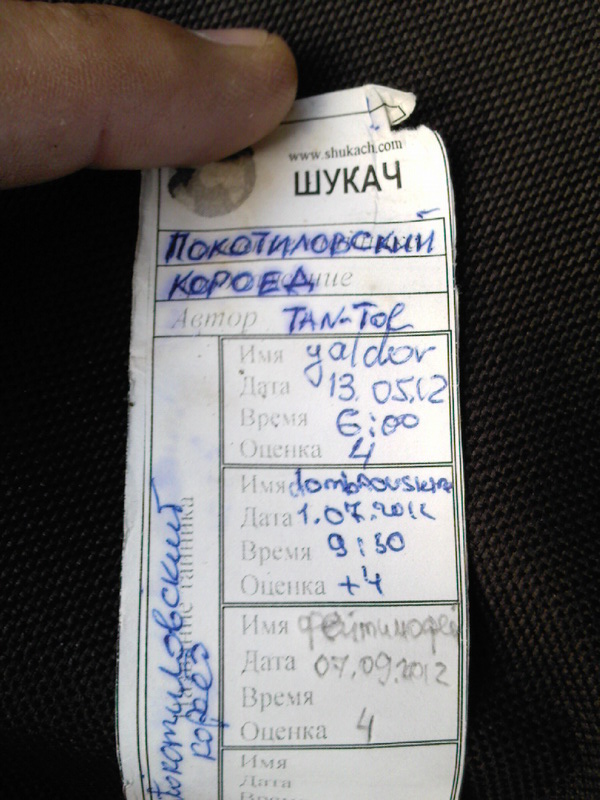 www.shukach.com
ШУКАЧ
ПОКОТИЛОВСКИЙ
КОРОЕД
Автор TAN-TOR
Имя yaldor
Дата 13.05.12
Время 6:00
Оценка 4
Имя
Дата 1.07.2012
Время 9:30
Оценка +4
Имя
Дата 07.09.2012
Время
Оценка 4
Имя
Дата
Время
Покотиловский
короед
Название тайника